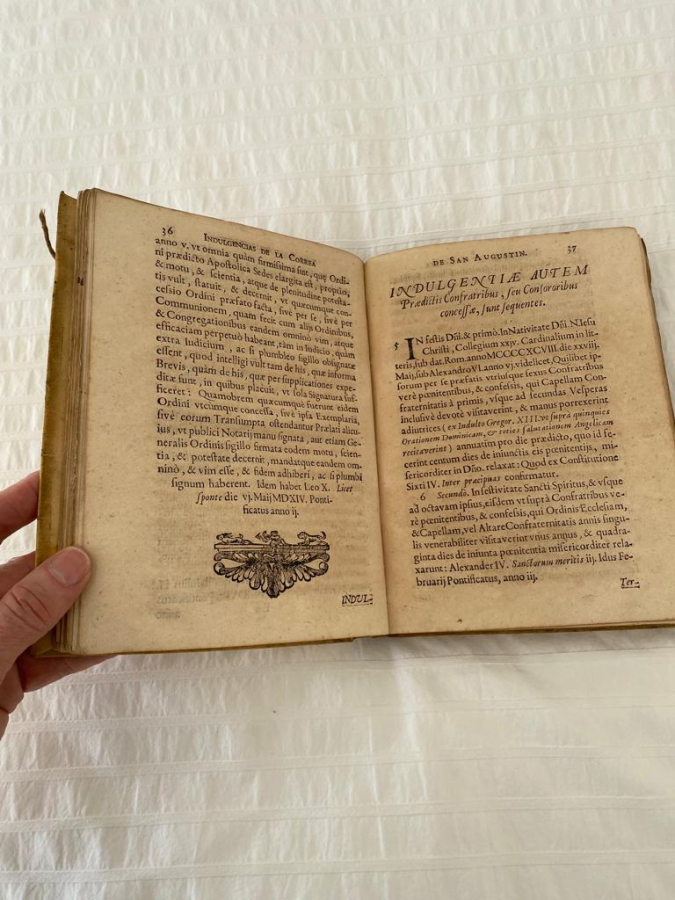 36 INDULGENCIAS DE LA CORREA
anno v. vt omnia quàm firmissima sint, quę Ordi-
ni prædicto Apostolica Sedes elargita est, proprio,
& motu, & scientia, atque de plenitudine potesta-
tis vult, statuit, & decernit, vt quæcumque con-
cessio Ordini præfato facta, sivè per se, sivè per
Communionem, quam fecit cum alijs Ordinibus,
& Congregationibus eandem omninò vim, atque
efficaciam perpetuò habeant, tàm in Iudicio, quàm
extra Iudicium, ac si plumbeo sigillo obsignatæ
essent, quod intelligi vult tam de his, quæ informa
Brevis, quàm de his, quæ per supplicationes expe-
ditæ sunt, in quibus placuit, vt sola Signatura suf-
ficeret: Quamobrem quæcumque fuerunt eidem
Ordini vtcumque concessa, sivè ipsa Exemplaria,
sivè eorum Transumpta ostendantur Prælati alicu-
ius, vt publici Notarij manu signata, aut etiam Ge-
neralis Ordinis sigillo firmata eodem motu, scien-
tia, & potestate decernit, mandatque eandem om-
ninò, & vim esse, & fidem adhiberi, ac si plumbi
signum haberent. Idem habet Leo X. Licet
sponte die vj. Maij MDXIV. Ponti-
ficatus anno ij.
INDUL-
DE SAN AUGUSTIN. 37
INDULGENTIÆ AUTEM
Prædictis Confratribus, seu Consororibus
concessæ, sunt sequentes.
5 IN festis Dñi. & primò. In Nativitate Dñi. N. Iesu
Christi, Collegium xxjv. Cardinalium in lit-
teris, sub dat. Rom. anno MCCCCXCVIII. die xxvij.
Maij, sub Alexandro VI. anno vj. videlicet. Quilibet ip-
sorum per se præfatis vtriusque sexus Confratribus
verè pœnitentibus, & confessis, qui Capellam Con-
fraternitatis à primis, vsque ad secundas Vesperas
inclusivè devotè visitaverint, & manus porrexerint
adiutrices (ex Indulto Gregor. XIII. vt suprà quinquies
Orationem Dominicam, & toties salutationem Angelicam
recitaverint) annuatim pro die prædicto, quo id fe-
cerint centum dies de iniunctis eis pœnitentijs, mi-
sericorditer in Dño. relaxat: Quod ex Constitutione
Sixti IV. Inter præcipuas confirmatur.
6 Secundò. In festivitate Sancti Spiritus, & vsque
ad octavam ipsius, eisdem vt suprà Confratribus ve-
rè pœnitentibus, & confessis, qui Ordinis Ecclesiam,
& Capellam, vel Altare Confraternitatis annis singu-
lis venerabiliter visitaverint vnus annus, & quadra-
ginta dies de iniuncta pœnitentia misericorditer rela-
xarunt: Alexander IV. Sanctorum meritis iij. Idus Fe-
bruarij Pontificatus, anno iij.
Ter-